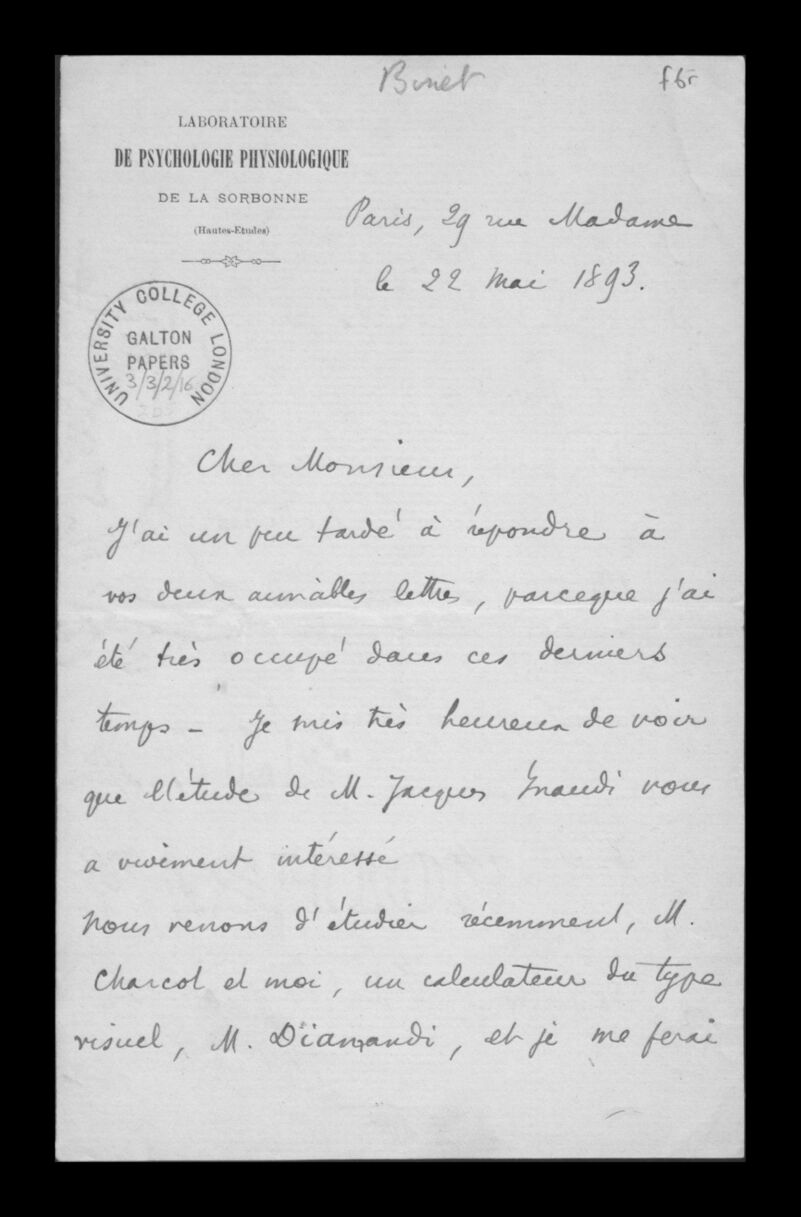 Binet
f6r
LABORATOIRE
DE PSYCHOLOGIE PHYSIOLOGIQUE
DE LA SORBONNE
(Hautes-Etudes)
Paris, 29 rue Madame
le 22 Mai 1893.
UNIVERSITY COLLEGE LONDON
GALTON
PAPERS
3/3/2/16
Cher Monsieur,
J'ai un peu tardé à répondre à
vos deux aimables lettres, parceque j'ai
été très occupé dans ces derniers
temps - Je suis très heureux de voir
que l'étude de M. Jacques Inaudi vous
a vivement intéressé
Nous venons d'étudier récemment, M.
Charcot et moi, un calculateur du type
visuel, M. Diamandi, et je me ferai